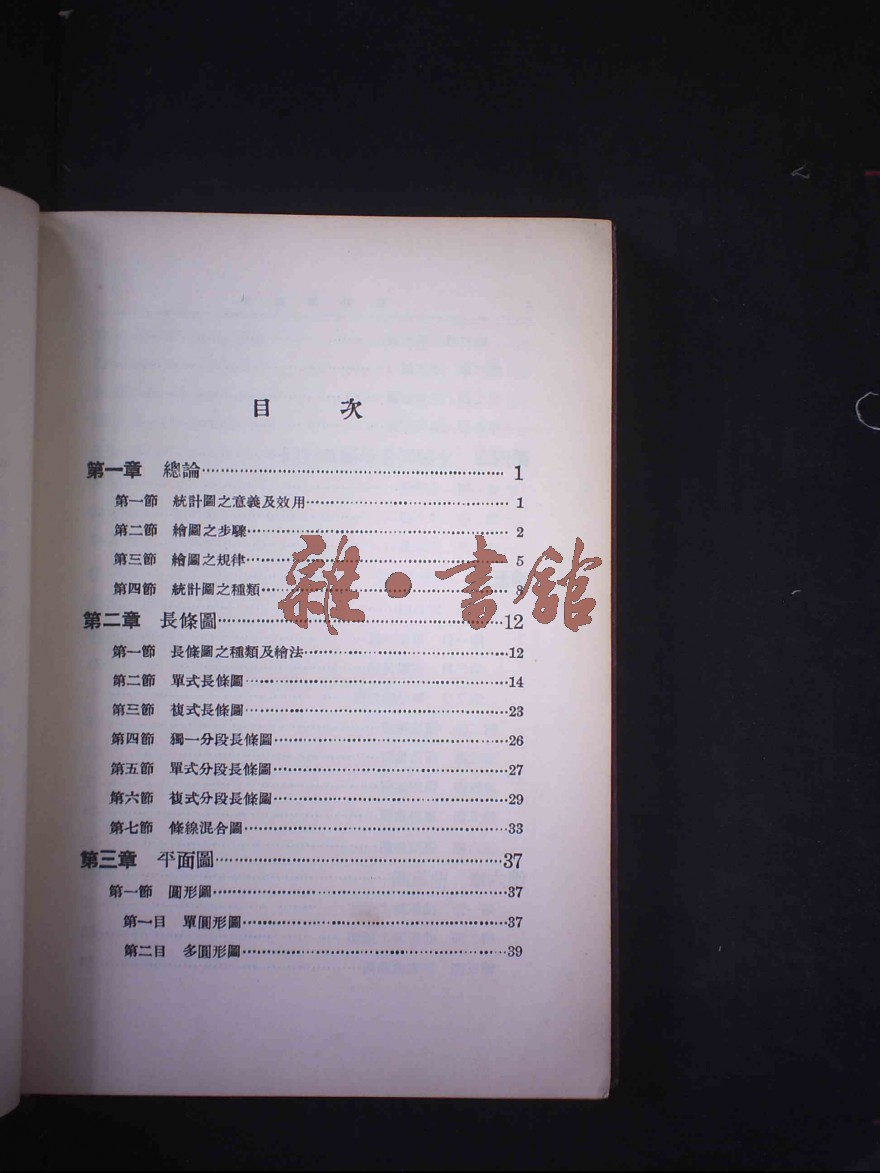 目 次
第一章 總論 1
第一節 統計圖之意義及效用 1
第二節 繪圖之步驟 2
第三節 繪圖之規律 5
第四節 統計圖之種類 8
雜·書館
第二章 長條圖 12
第一節 長條圖之種類及繪法 12
第二節 單式長條圖 14
第三節 複式長條圖 23
第四節 獨一分段長條圖 26
第五節 單式分段長條圖 27
第六節 複式分段長條圖 29
第七節 條線混合圖 33
第三章 平面圖 37
第一節 圓形圖 37
第一目 單圓形圖 37
第二目 多圓形圖 39